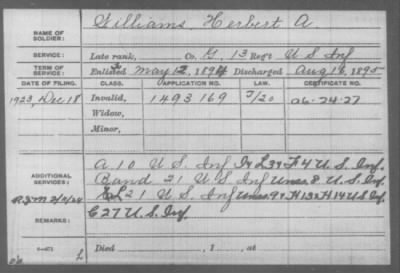 NAME OF SOLDIER: Williams, Herbert A.
SERVICE: Late rank, Co. G, 13 Reg't U S Inf
TERM OF SERVICE: Enlisted May 12, 1894 Discharged Aug 16, 1895
DATE OF FILING. CLASS. APPLICATION NO. LAW. CERTIFICATE NO.
1923 Dec 18 Invalid, 1493169 J/20 26-24-27
Widow,
Minor,
ADDITIONAL SERVICES: A. 10 U S Inf L 39 F 4 U. S. Inf.
Band 21 U S Inf 8 U. S. Inf.
L 21 U S Inf H 14 U S Inf
REMARKS: C 27 U. S. Inf.
Died , 1 , at